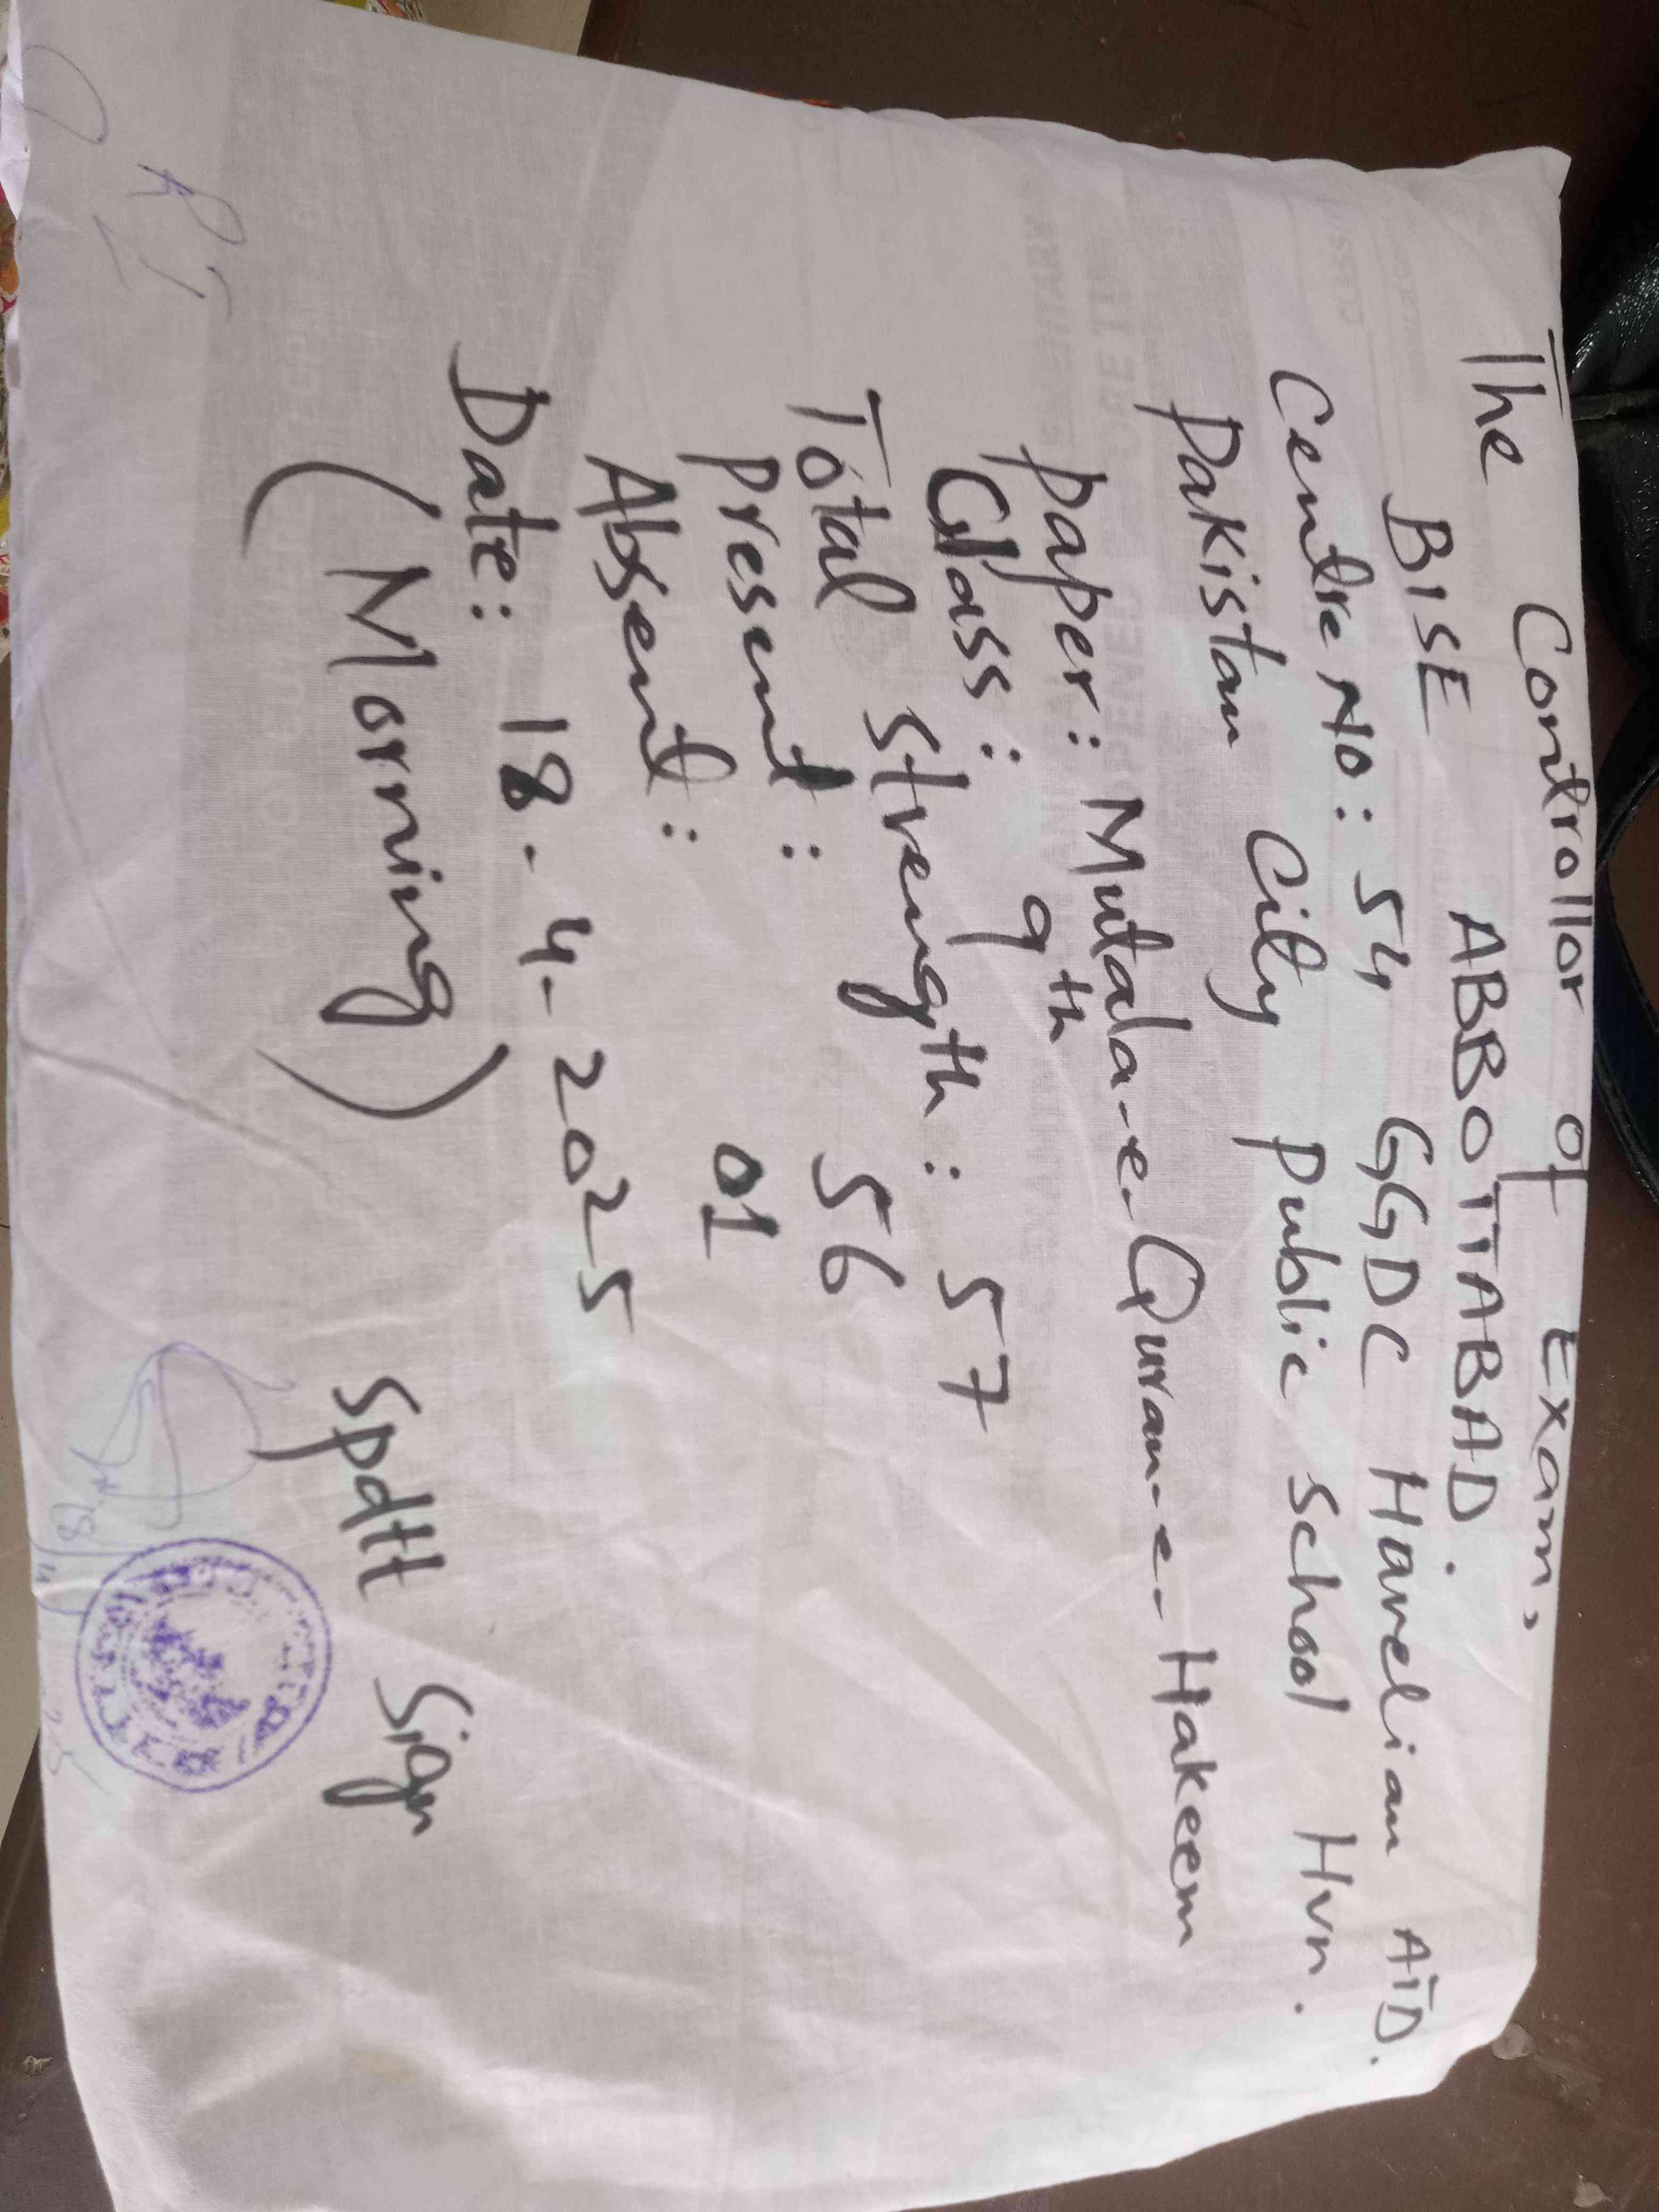 The Controllor of Exam,
BISE ABBOTTABAD.
Centre No: 54 GGDC Havelian ATD.
Pakistan City Public School Hvn.
Paper: Mutala-e-Quran-e-Hakeem
Class: 9th
Total Strength: 57
Present: 56
Absent: 01
Date: 18-4-2025
(Morning)
Spdtt Sign